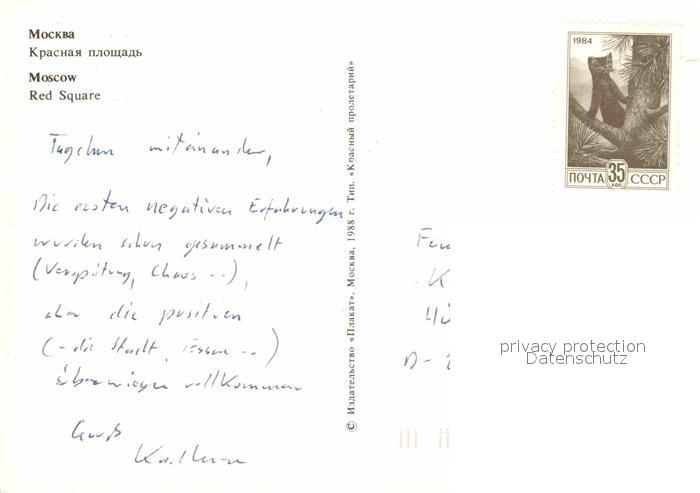 Москва
Красная площадь
Moscow
Red Square
Tagchen miteinander,
Die ersten negativen Erfahrungen
wurden schon gesammelt
(Verspätung, Chaos ..),
aber die positiven
(- die Stadt, Essen ..)
überwiegen vollkommen
Gruß
© Издательство «Плакат», Москва, 1988 г. Тип. «Красный пролетарий»
1984
ПОЧТА 35 КОП СССР
Fam
K
Hü
D-
privacy protection
Datenschutz